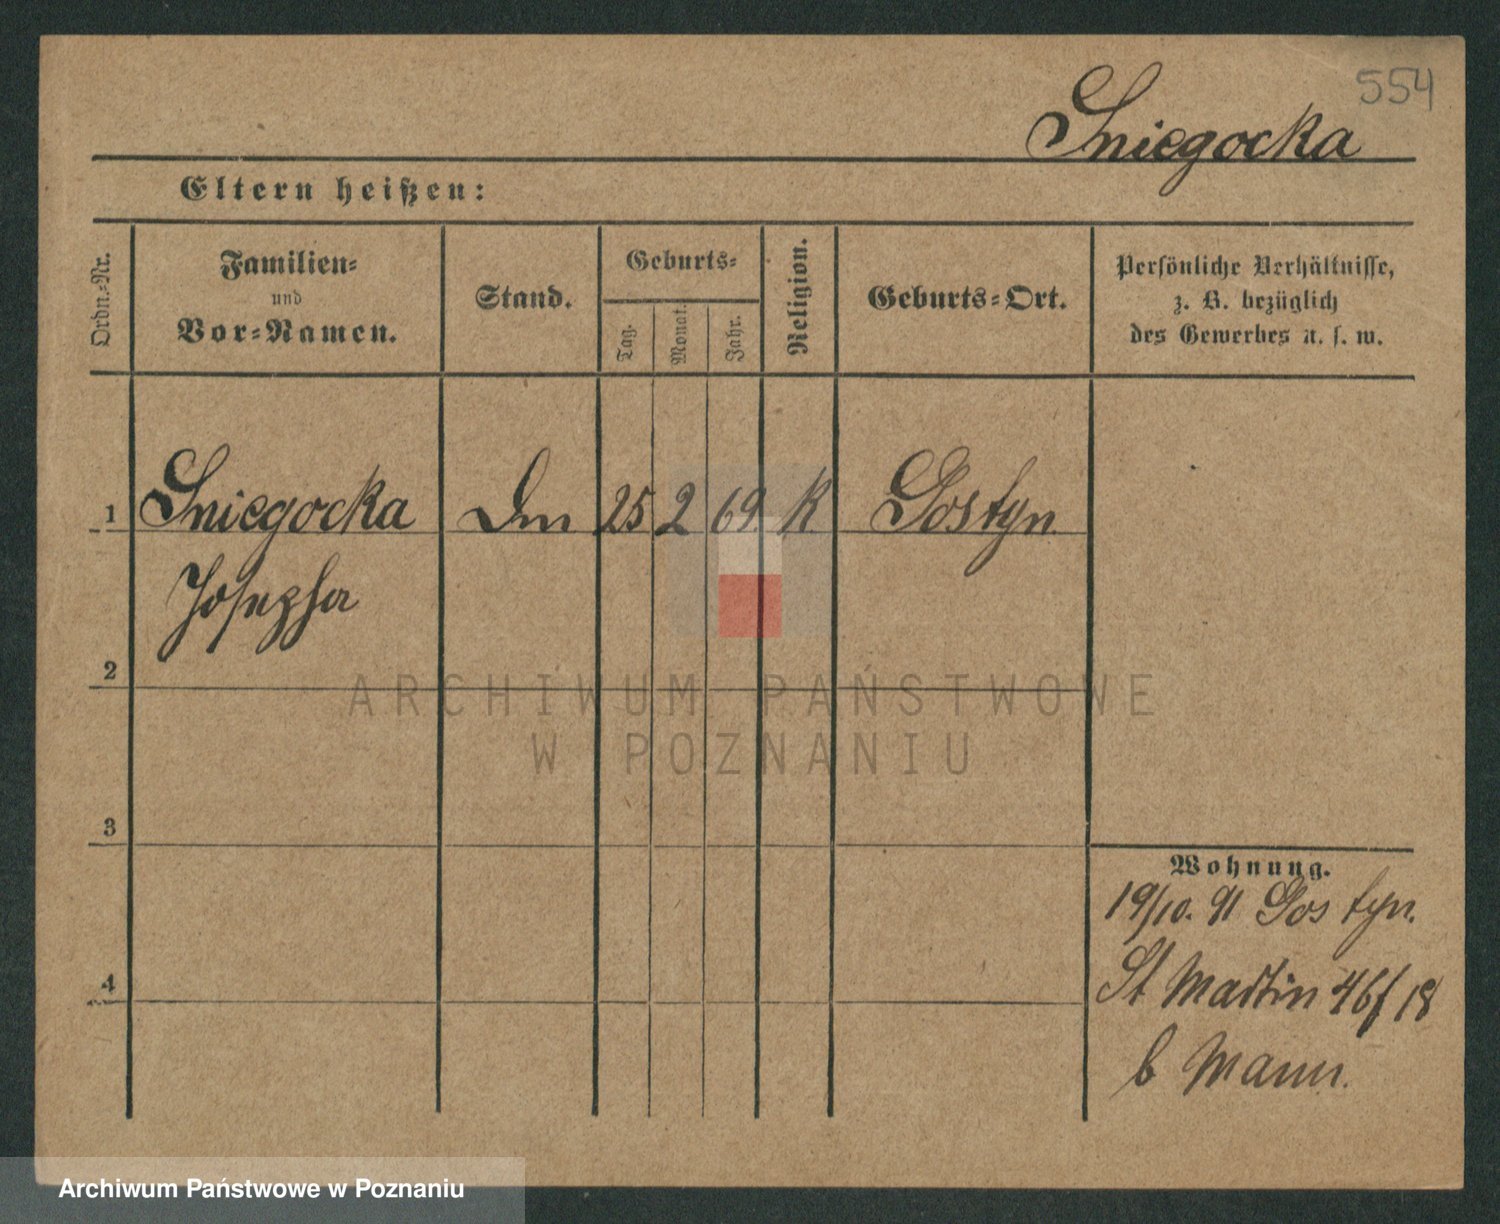 554
Sniegocka
Eltern heißen:
Ordn.-Nr.
Familien-
und
Vor-Namen.
Stand.
Geburts-
Tag.
Monat.
Jahr.
Religion.
Geburts-Ort.
Persönliche Verhältnisse,
z. B. bezüglich
des Gewerbes u. s. w.
1 Sniegocka Dm 25 2 69. K Gostyn.
Josepha
2
3
4
Wohnung.
19/10. 91 Gostyn.
St Martin 46/18
b Mann.
ARCHIWUM PAŃSTWOWE
W POZNANIU
Archiwum Państwowe w Poznaniu